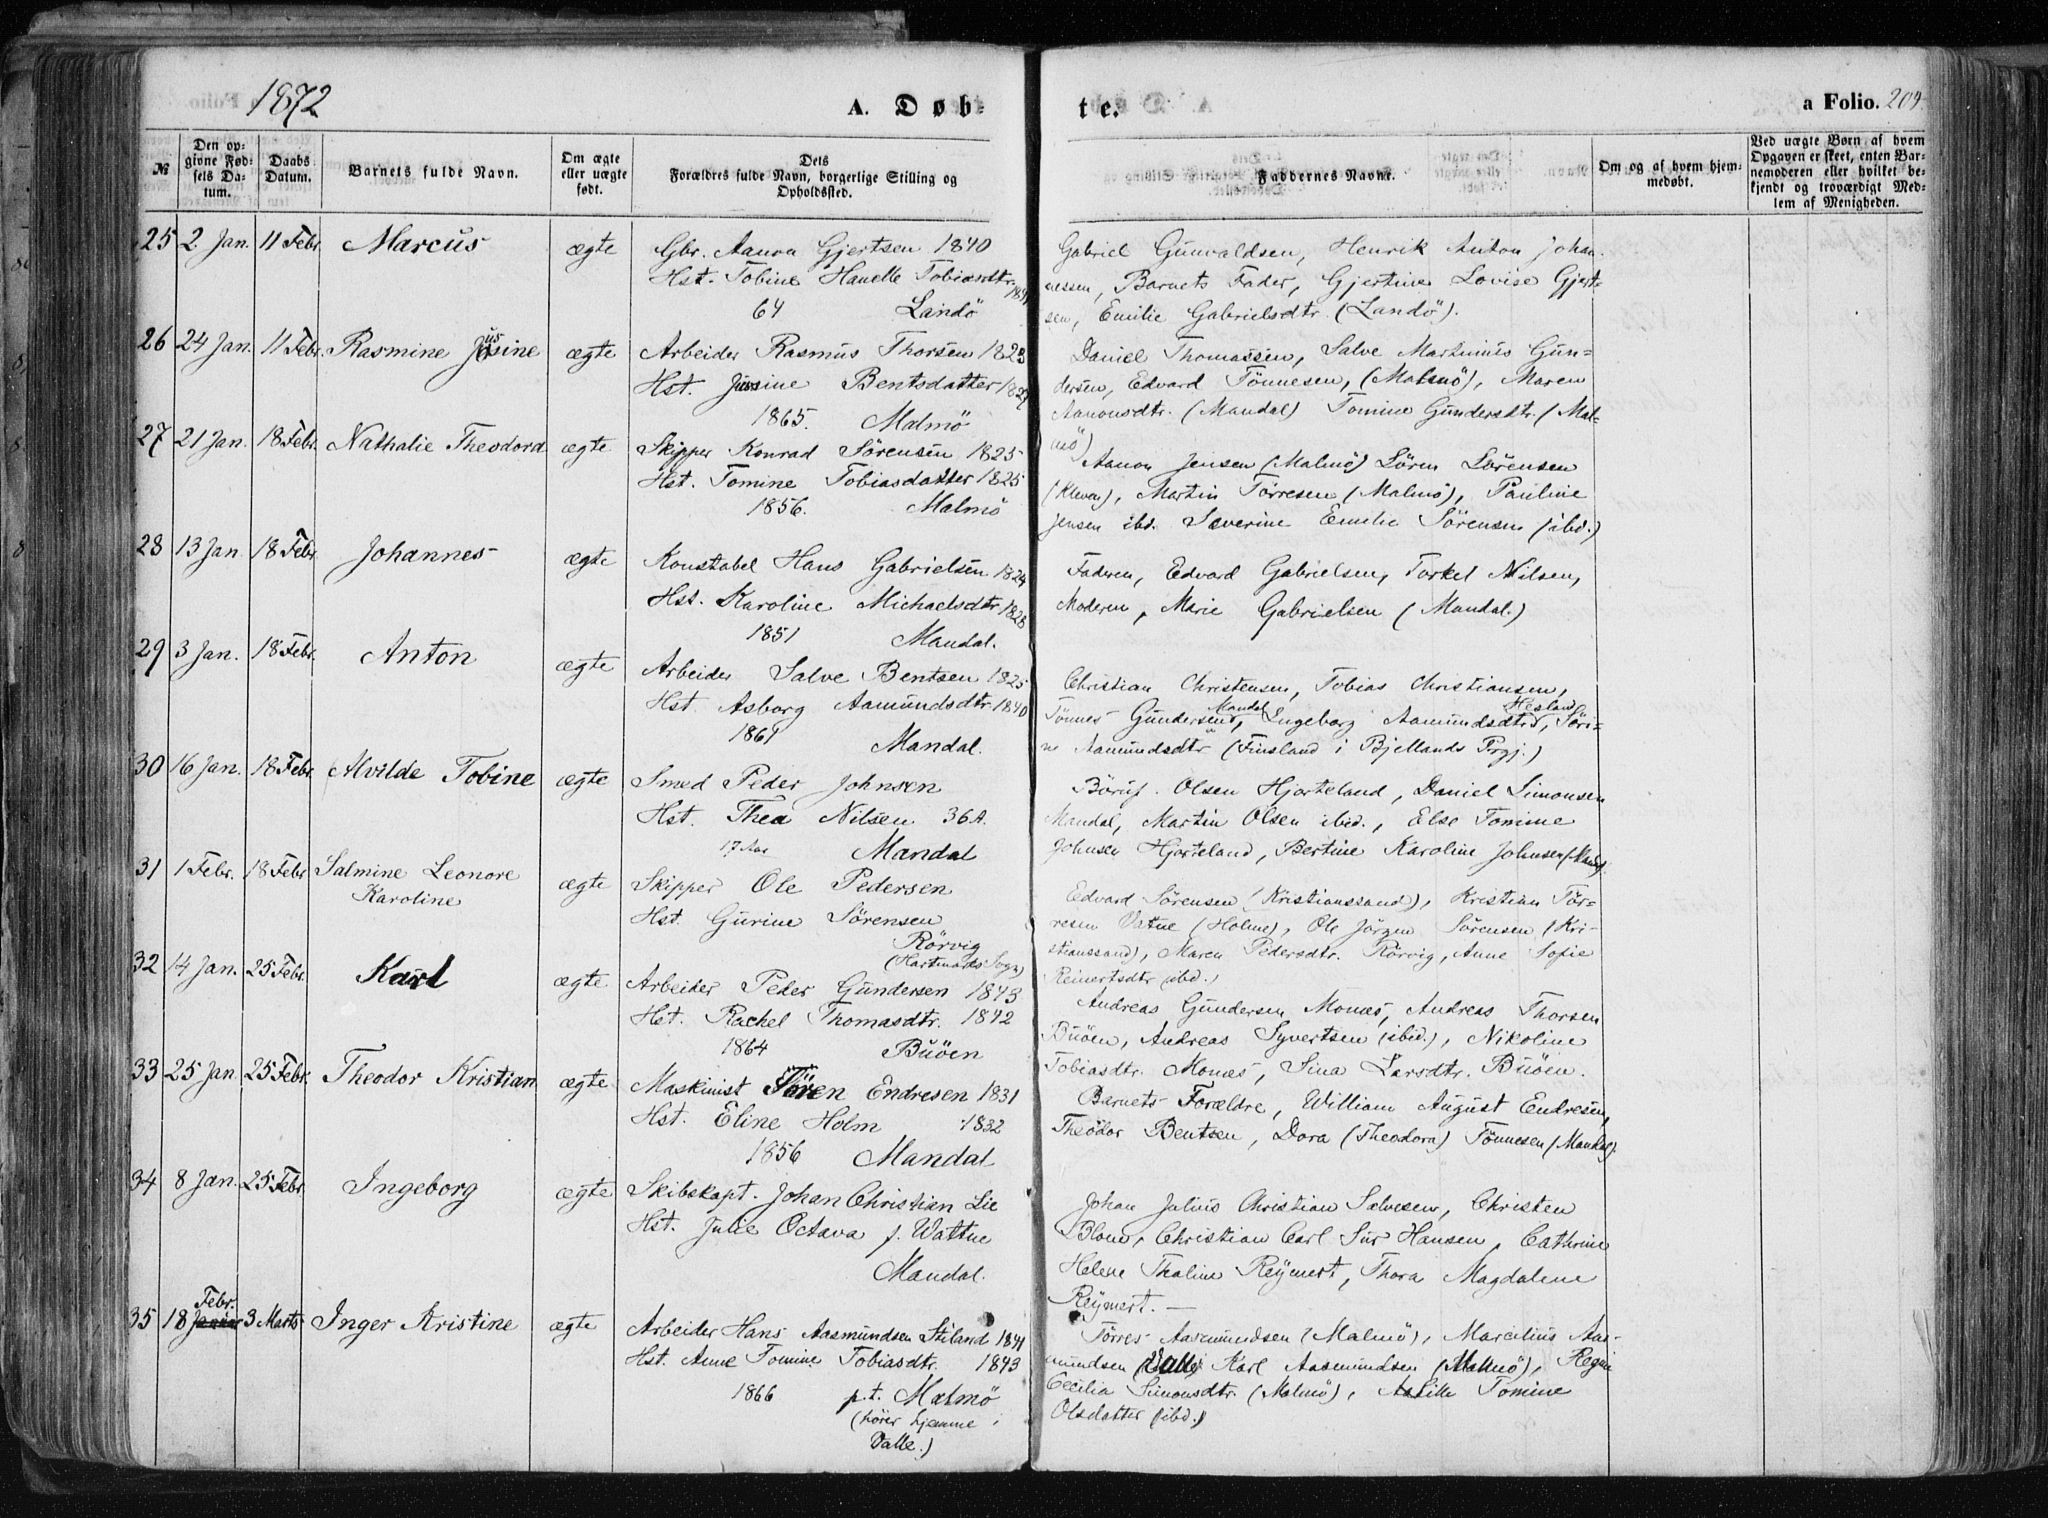 1872
A. Døb-
№
Den op-
givne Fød-
sels Da-
tum.
Daabs
Datum.
Barnets fulde Navn.
Om ægte
eller uægte
født.
Dets
Forældres fulde Navn, borgerlige Stilling og
Opholdssted.
25 2 Jan. 11 Febr. Marcus ægte Gbr. Aanon Gjertsen 1840
Hst. Tobine Hanelle Tobiasdtr.
64 Landö
26 24 Jan. 11 Febr. Rasmine Jusine ægte Arbeider Rasmus Thorsen 1823
Hst. Jusine Bentsdatter 1827
1865. Malmö
27 21 Jan. 18 Febr. Nathalie Theodora ægte Skipper Konrad Sörensen 1825
Hst. Tomine Tobiasdatter 1825
1856. Malmö
28 13 Jan 18 Febr. Johannes ægte Konstabel Hans Gabrielsen 1824
Hst. Karoline Michaelsdtr. 1828
1851 Mandal.
29 3 Jan. 18 Febr. Anton ægte Arbeider Salve Bentsen 1825
Hst. Asborg Aamundsdtr. 1840
1861 Mandal.
30 16 Jan. 18 Febr. Alvilde Tobine ægte Smed Peder Johnsen
Hst. Thea Nilsen 36 A.
17 Aar Mandal
31 1 Febr. 18 Febr Salmine Leonore
Karoline ægte Skipper Ole Pedersen
Hst. Gurine Sörensen
Rörvig
(Hartmarks Sogn)
32 14 Jan. 25 Febr. Karl ægte Arbeider Peder Gundersen 1843
Hst. Rachel Thomasdtr. 1842
1864 Buöen
33 25 Jan. 25 Febr. Theodor Kristian ægte Maskinist Sören Endresen 1831
Hst. Eline Holm 1832
1856 Mandal
34 8 Jan. 25 Febr. Ingeborg ægte Skibskapt. Johan Christian Lie
Hst. Julie Octava f. Wattne
Mandal.
Febr.
35 18 Januar 3 Marts Inger Kristine ægte Arbeider Hans Aasmundsen Stiland 1841
Hst. Anne Tomine Tobiasdtr. 1843
1866 p.t. Malmö
(hörer hjemme i
Valle.)
te.
a Folio. 209.
Faddernes Navne.
Om og af hvem hjem-
medøbt.
Ved uægte Børn af hvem
Opgaven er skeet, enten Bar-
nemoderen eller hvilket be-
kjendt og troværdigt Med-
lem af Menigheden.
Gabriel Gunvaldsen, Henrik Anton Johan-
nessen, Barnets Fader, Gjertine Lovise Gjert-
sen, Emilie Gabrielsdtr. (Landö).
Daniel Thomassen, Salve Martinius Gun-
dersen, Edvard Tönnesen, (Malmö), Maren
Aanonsdtr. (Mandal) Tomine Gundersdtr. (Mal-
mö)
Aanon Jensen (Malmö) Sören Sörensen
(Kleven), Martin Törresen (Malmö), Pauline
Jensen ibd. Severine Emilie Sörensen (ibd.)
Faderen, Edvard Gabrielsen, Torkel Nilsen,
Moderen, Marie Gabrielsen (Mandal.)
Christian Christensen, Tobias Christiansen,
Tönnes Gundersen, Mandal Ingeborg Aamundsdtr. Hesland, Söri-
ne Aamundsdtr (Finsland i Bjellands Prgj.)
Olsen Hjorteland, Daniel Simonsen
Mandal, Martin Olsen ibid., Else Tomine
Johnsen Hjorteland, Bertine Karoline Johnsen (Mandal)
Edvard Sörensen (Kristianssand), Kristian Tör-
resen Vatne (Holme), Ole Jörgen Sörensen (Kri-
stianssand), Maren Pedersdtr. Rörvig, Anne Sofie
Reinertsdtr (ibd.)
Andreas Gundersen Momes, Andreas Thorsen
Buöen, Andreas Syvertsen (ibid.), Nikoline
Tobiasdtr. Momes, Sina Larsdtr. Buöen.
Barnets Forældre, William August Endresen,
Theodor Bentsen, Dora (Theodora) Tönnesen (Mandal).
Johan Julius Christian Salvesen, Christen
Blom, Christian Carl Hansen, Cathrine
Helene Thaline Reymert, Thora Magdalene
Reymert. —
Törres Aasmundsen (Malmö), Marcilius Aas-
mundsen (Valle) Karl Aasmundsen (Malmö),
Cecilia Simonsdtr. (Malmö), Tomine
Olsdatter (ibd.)